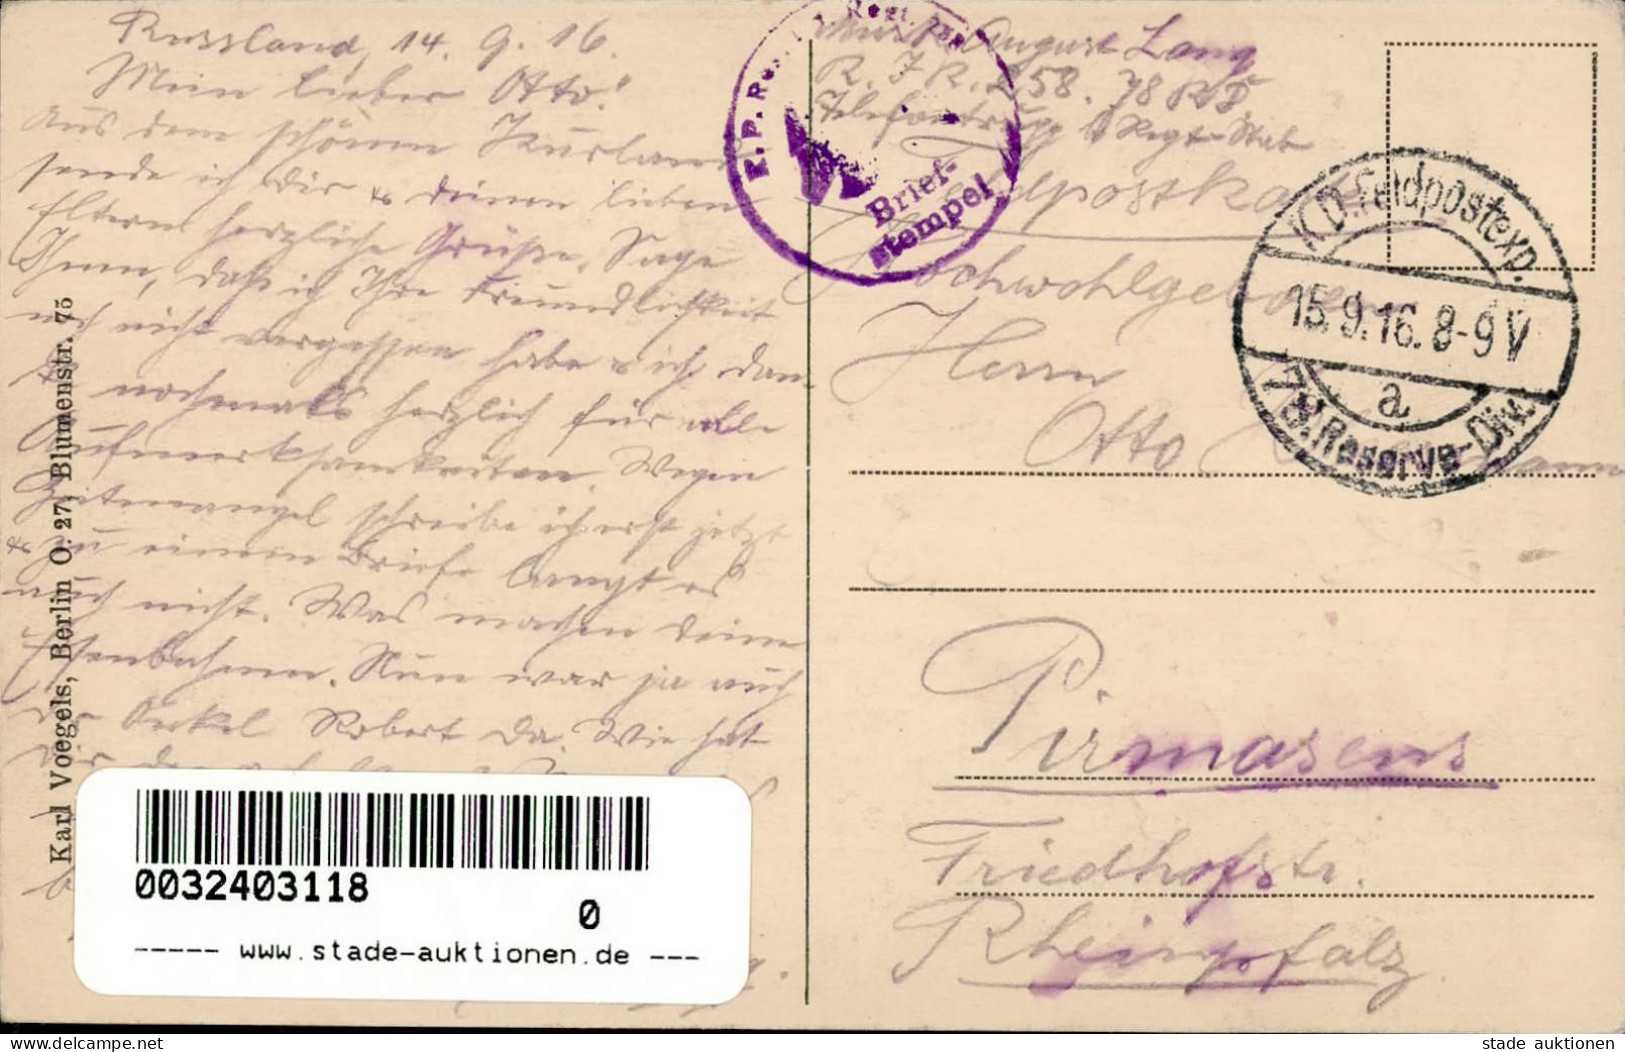 Russland, 14. 9. 16.
Mein lieber Otto!
Aus dem schönen Kurland
sende ich Dir & deinen lieben
Eltern herzliche Grüße. Sage
Ihnen, daß ich Ihre Freundlichkeit
noch nicht vergessen habe & ich dan-
ke nochmals herzlich für alle
Aufmerksamkeiten. Wegen
Zeitmangel schreibe ich erst jetzt
& zu einem Briefe langt es
auch nicht. Was machen deine
Eisenbahnen. Nun war ja auch
der Onkel Robert da. Wie hat
Karl Voegels, Berlin O. 27, Blumenstr. 75
K. P. Res. Regt.
Brief-
stempel
August Lang
R. I. R. 258. 78 R D
Regts Stab
Feldpostkarte
Hochwohlgeboren
Herrn
Otto
Pirmasens
Friedhofstr.
Rheinpfalz
K.D. Feldpostexp.
15.9.16. 8-9 V
a
78. Reserve-Div.
0032403118
0
----- www.stade-auktionen.de ---
stade auktionen
www.delcampe.net